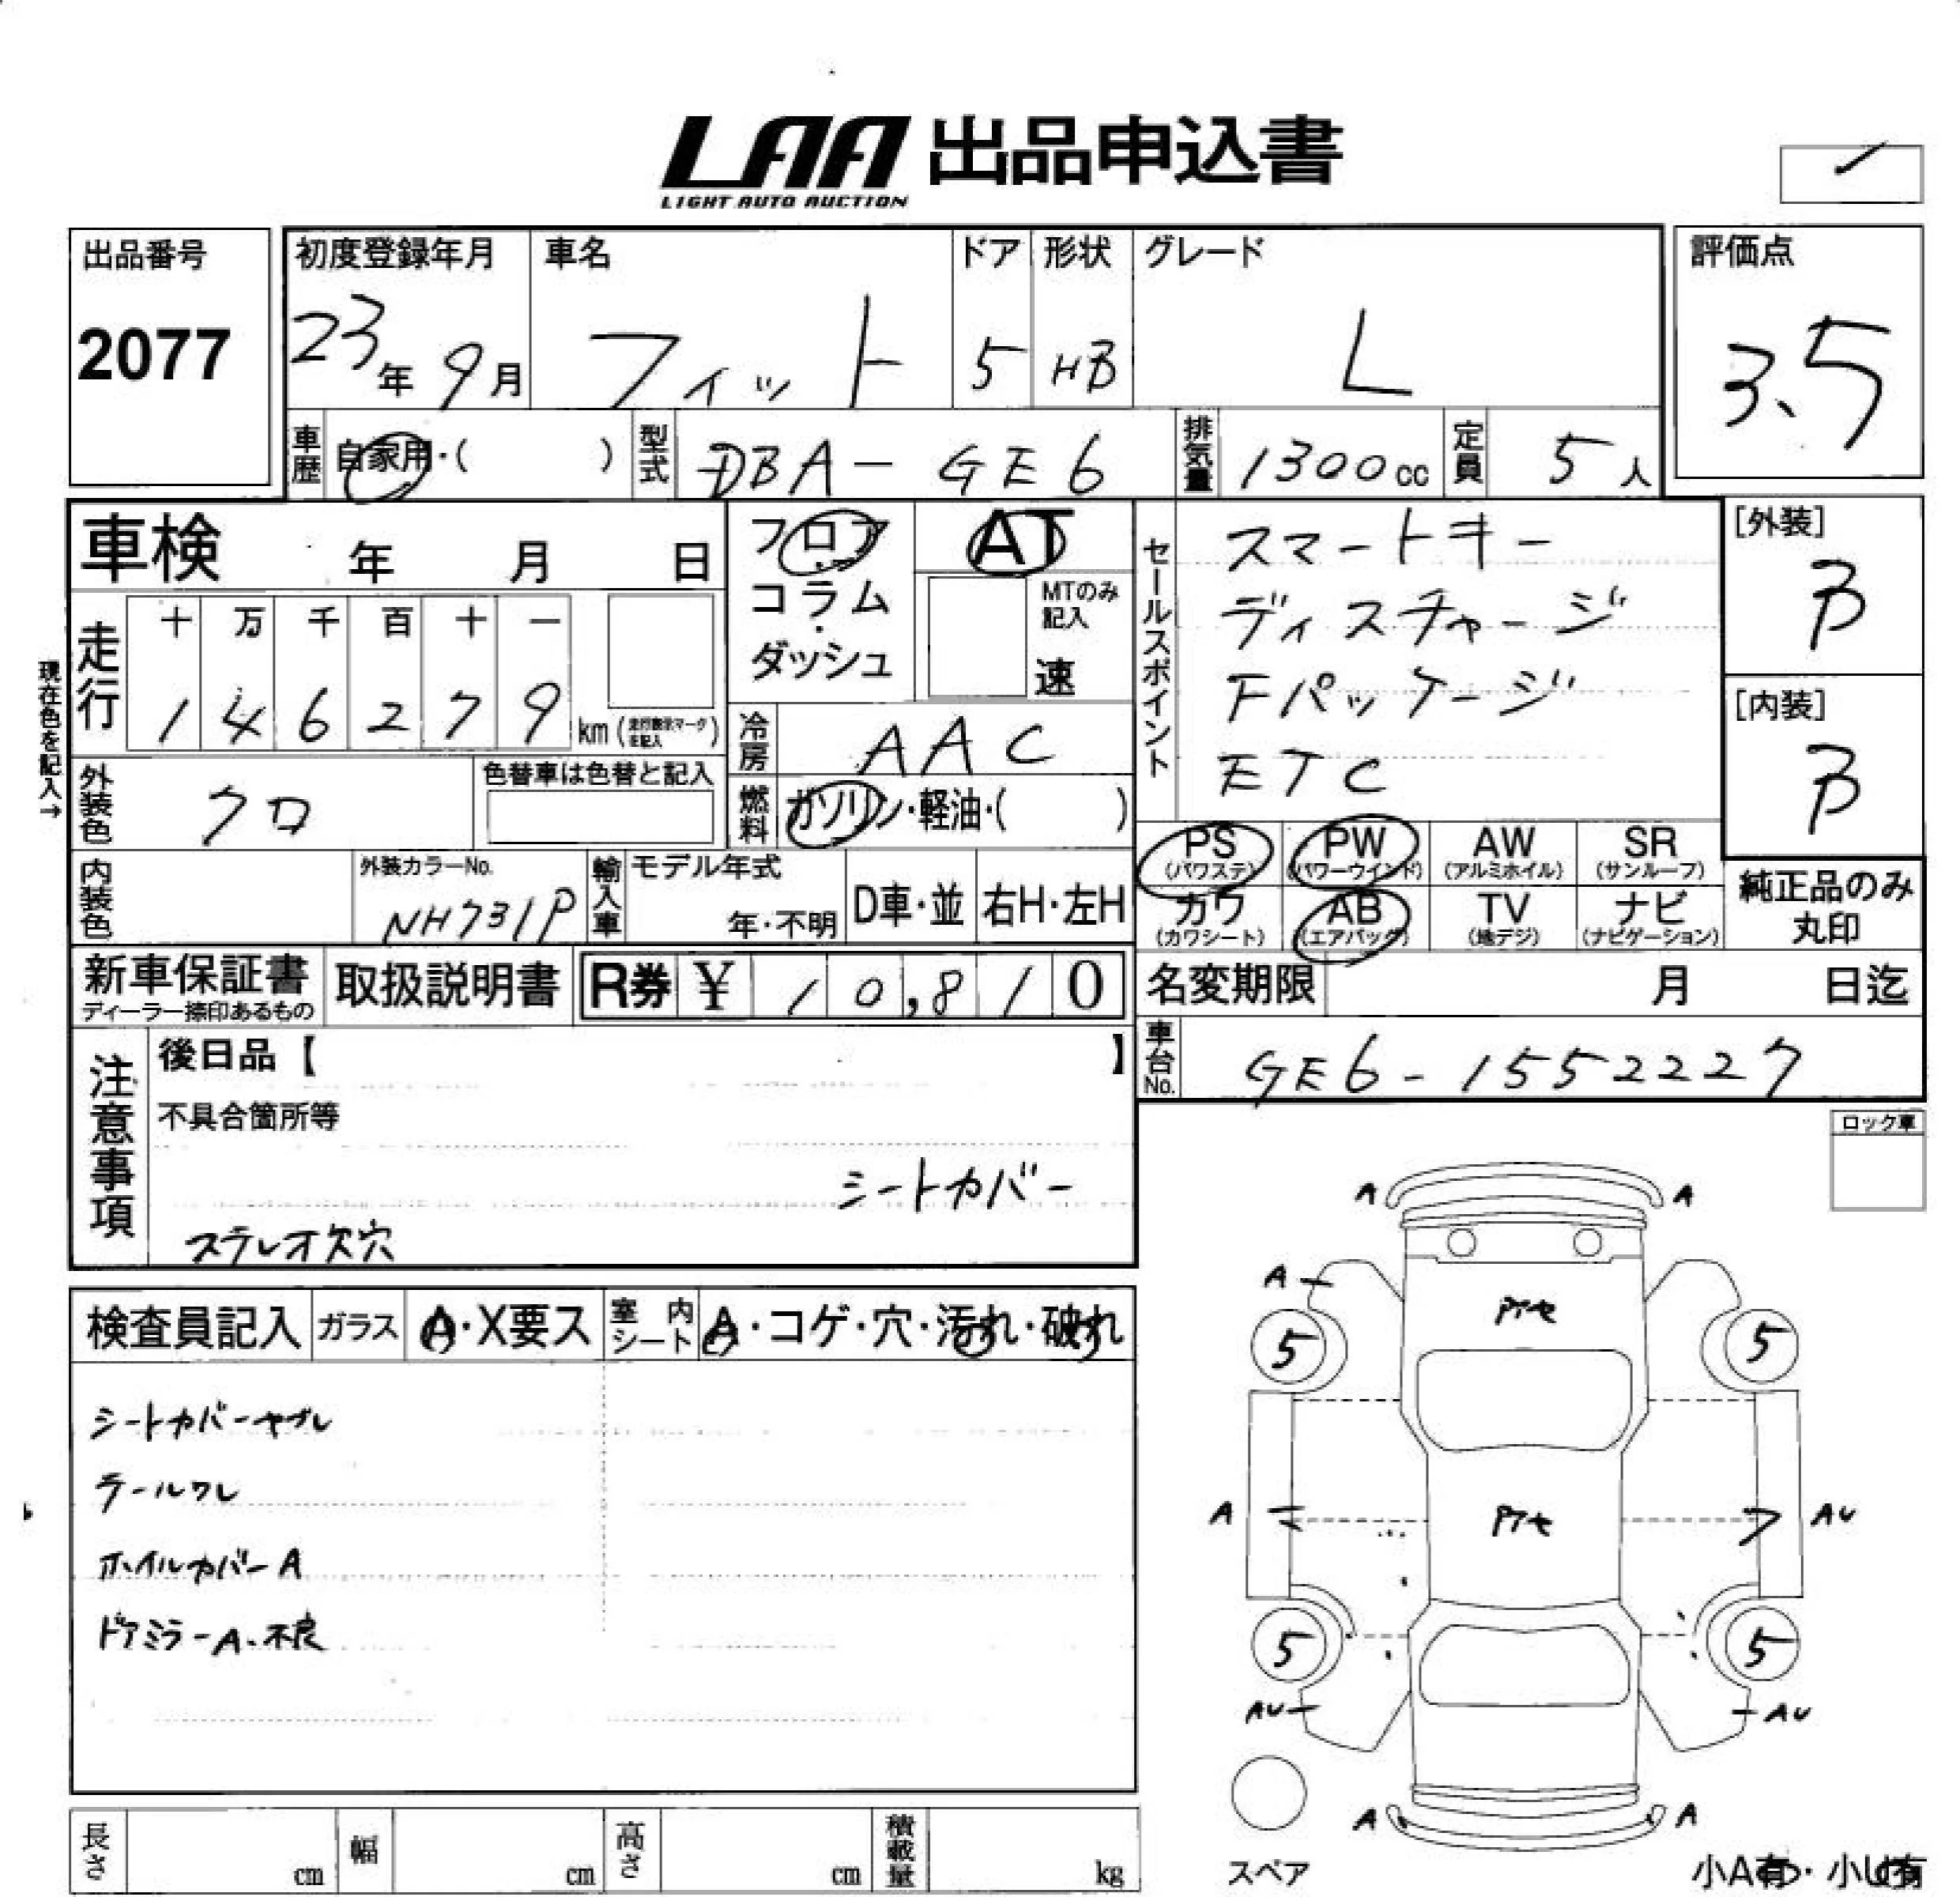 LAA 出品申込書
LIGHT AUTO AUCTION
出品番号
2077
初度登録年月
23年9月
車名
フィット
ドア
5
形状
HB
グレード
L
評価点
3.5
車歴
自家用・( )
型式
DBA-GE6
排気量
1300cc
定員
5人
車検 年 月 日
フロア
コラム
ダッシュ
AT
MTのみ
記入
速
セールスポイント
スマートキー
ディスチャージ
Fパッケージ
ETC
[外装]
B
[内装]
B
現在色を記入→
走行
十 万 千 百 十 一
1 4 6 2 7 9 km
冷房
AAC
燃料
ガソリン・軽油・( )
外装色
クロ
色替車は色替と記入
内装色
外装カラーNo.
NH731P
輸入車
モデル年式
年・不明
D車・並
右H・左H
PS
(パワステ)
PW
(パワーウインド)
AW
(アルミホイル)
SR
(サンルーフ)
カワ
(カワシート)
AB
(エアバッグ)
TV
(地デジ)
ナビ
(ナビゲーション)
純正品のみ
丸印
新車保証書
ディーラー捺印あるもの
取扱説明書
R券 ¥ 10,810
名変期限 月 日迄
車台No.
GE6-1552227
注意事項
後日品【 】
不具合箇所等
シートカバー
ステレオ欠穴
ロック車
検査員記入
ガラス
A・X要ス
室内シート
A・コゲ・穴・汚れ・破れ
シートカバーヤブレ
テールワレ
ホイルカバーA
ドアミラーA.不良
A A
A
5 5
A AU
5 5
AU AU
A A
スペア
小A有・小U有
長さ cm
幅 cm
高さ cm
積載量 kg